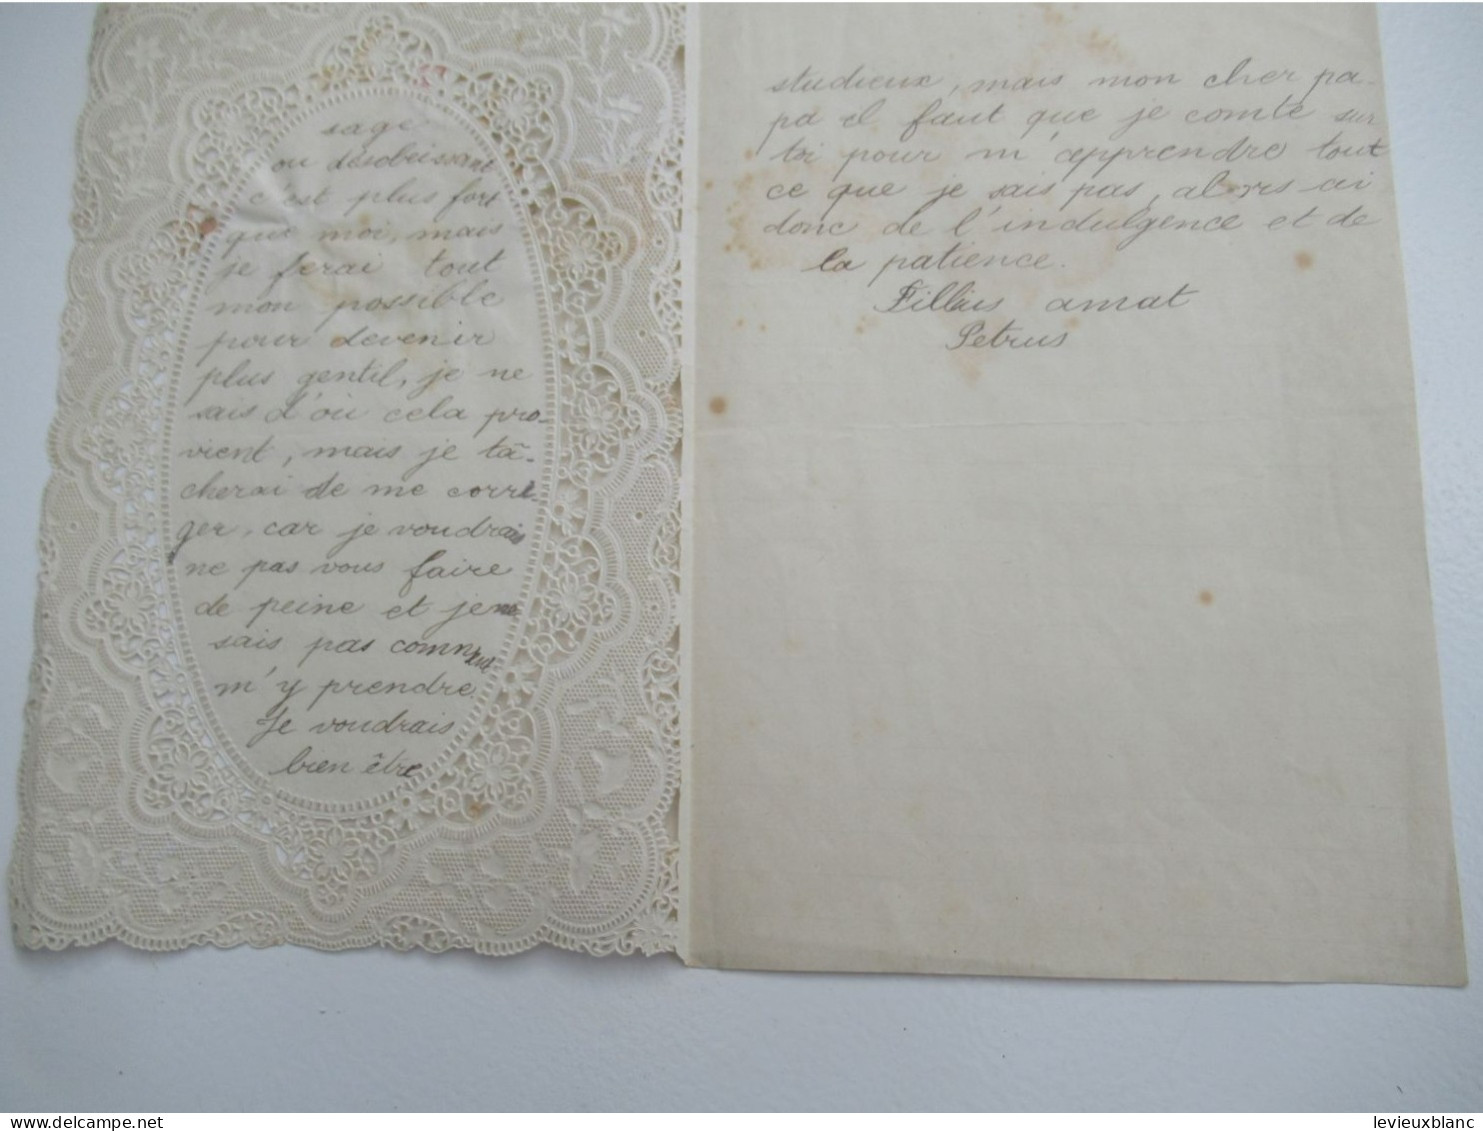 sage
ou désobeissant
c'est plus fort
que moi, mais
je ferai tout
mon possible
pour devenir
plus gentil, je ne
sais d'où cela pro-
vient, mais je tâ-
cherai de me corri-
ger, car je voudrais
ne pas vous faire
de peine et je ne
sais pas comment
m'y prendre.
Je voudrais
bien être
studieux, mais mon cher pa-
pa il faut que je comte sur
toi pour m'apprendre tout
ce que je sais pas, alors ai
donc de l'indulgence et de
la patience.
Fillius amat
Petrus
levieuxblanc